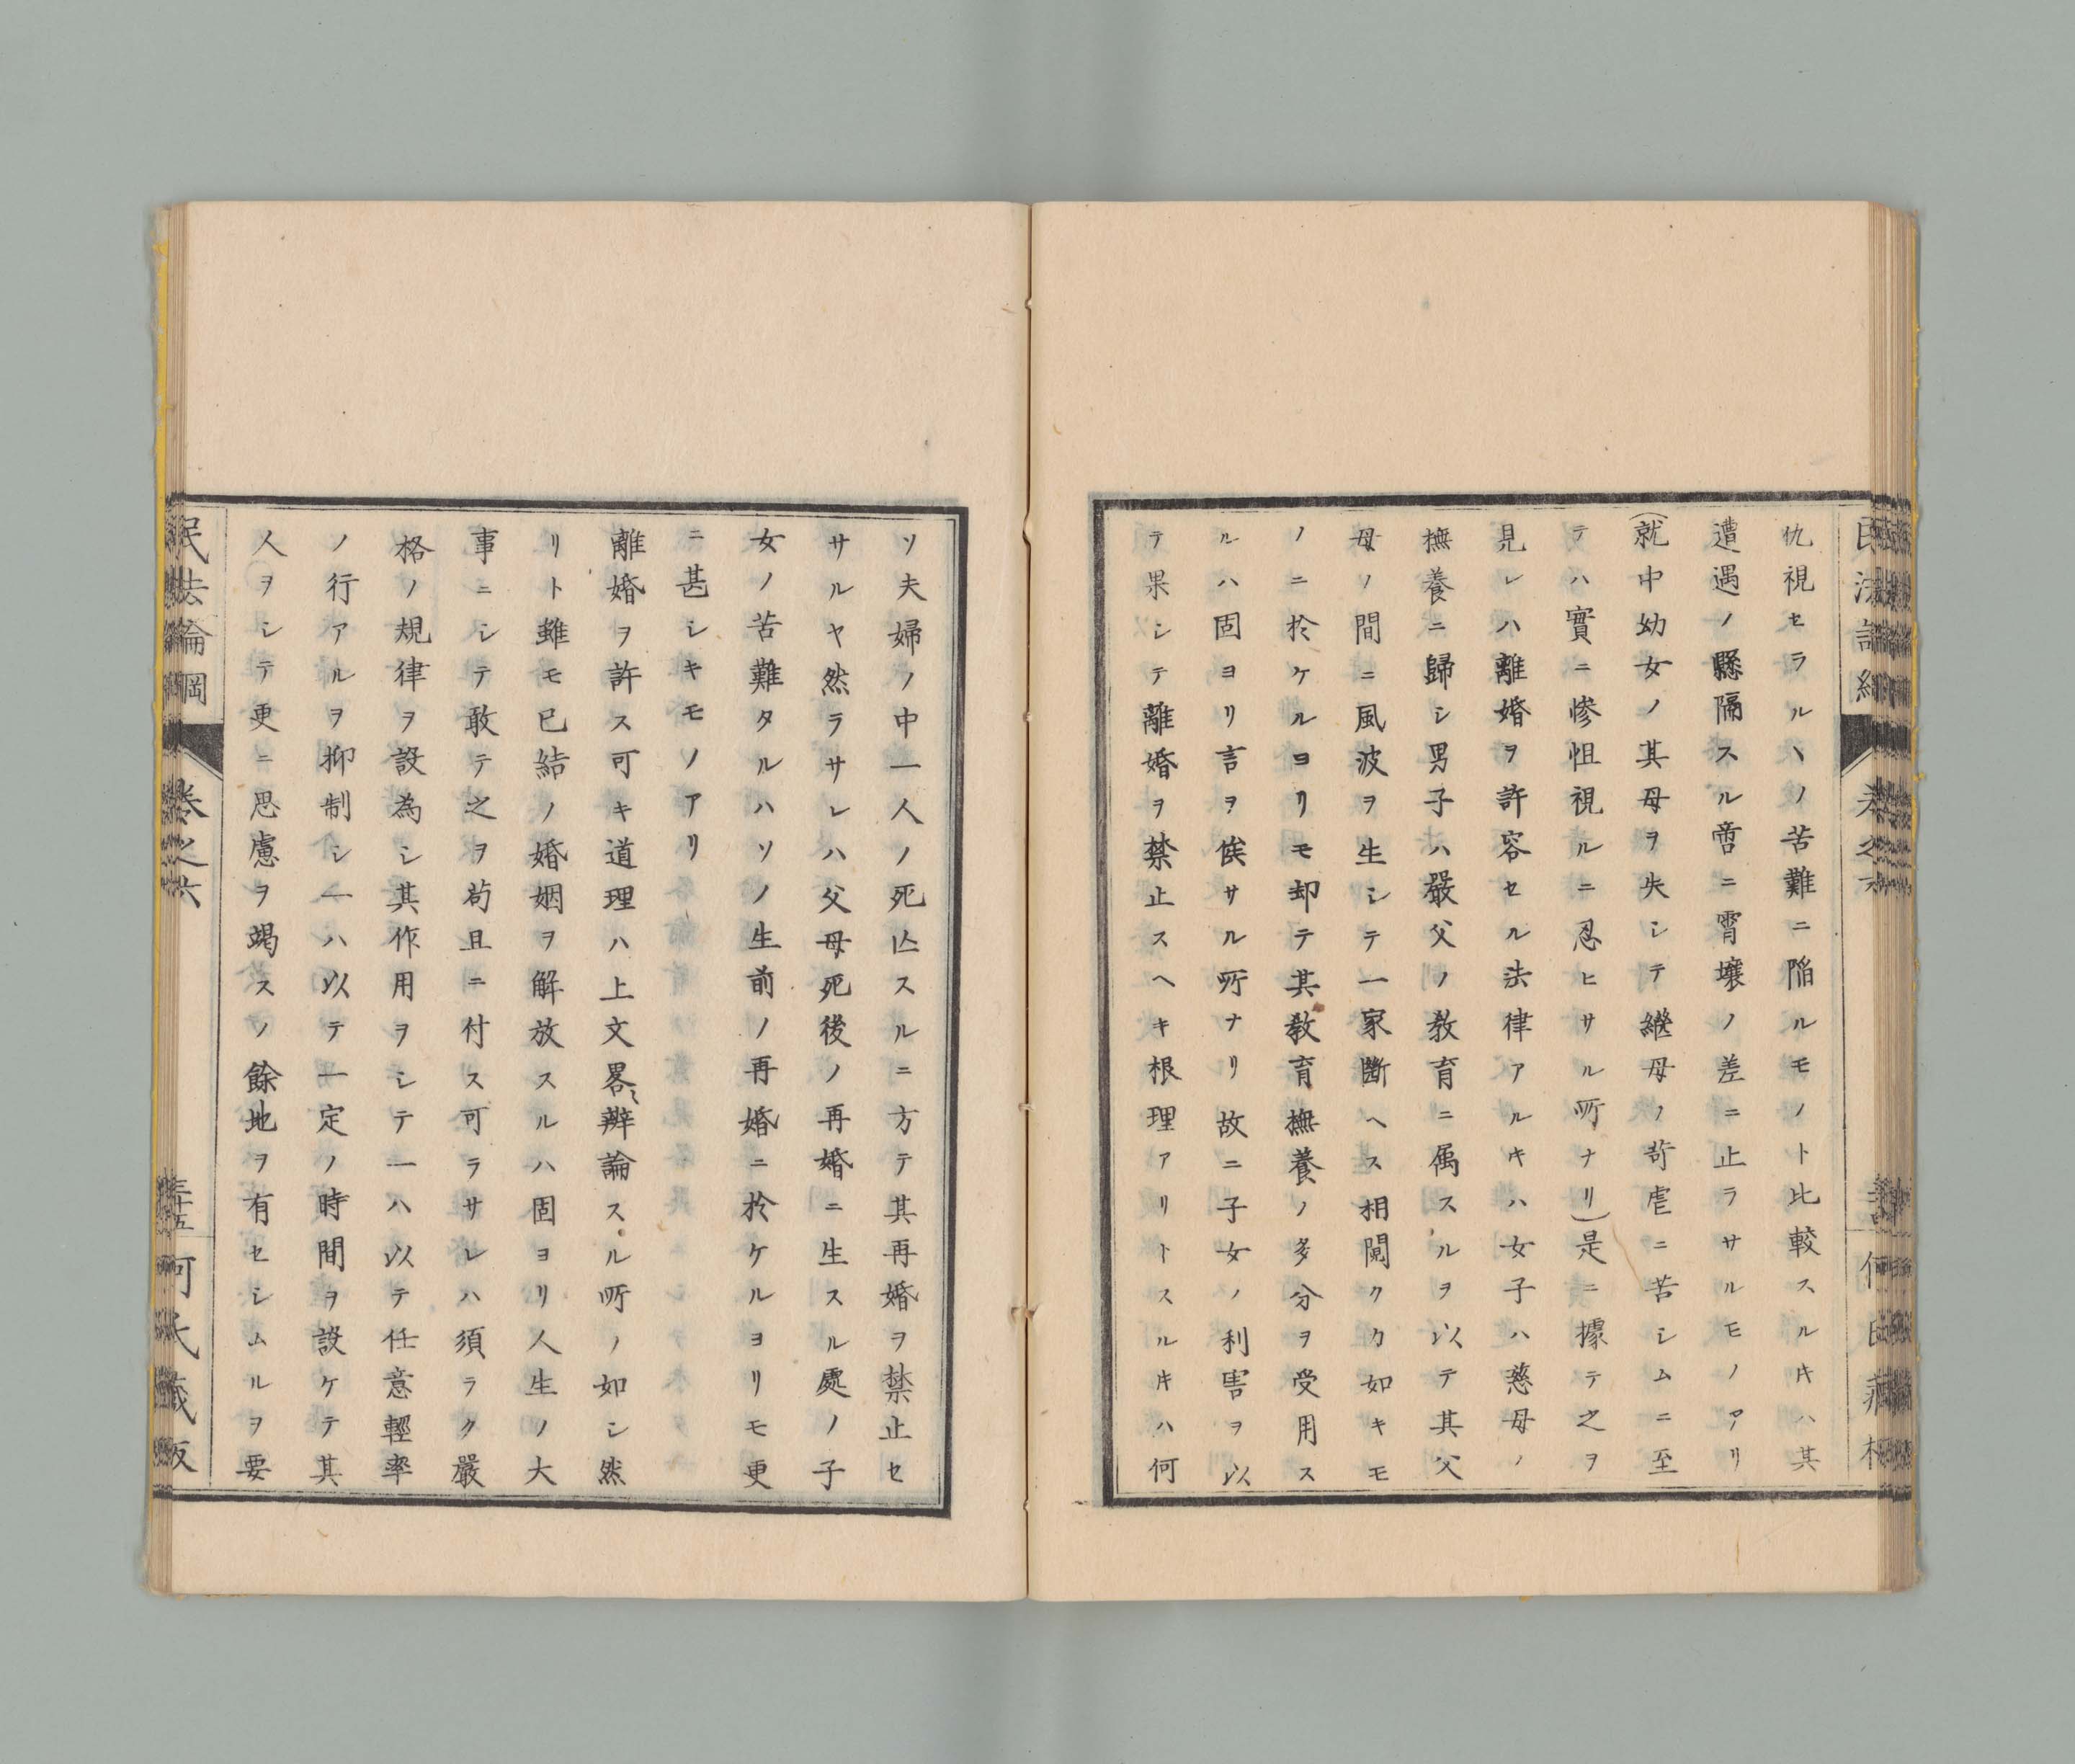 仇視セラルヽノ苦難ニ陥ルモノト比較スルキハ其
遭遇ノ懸隔スル啻ニ霄壤ノ差ニ止ラサルモノアリ
(就中幼女ノ其母ヲ失シテ繼母ノ苛虐ニ苦シムニ至
テハ實ニ惨怛視ルニ忍ヒサル所ナリ)是ニ據テ之ヲ
見レハ離婚ヲ許容セル法律アルキハ女子ハ慈母ノ
撫養ニ歸シ男子ハ嚴父ノ敎育ニ属スルヲ以テ其父
母ノ間ニ風波ヲ生シテ一家斷ヘス相鬩クカ如キモ
ノニ於ケルヨリモ却テ其敎育撫養ノ多分ヲ受用ス
ルハ固ヨリ言ヲ俟サル所ナリ故ニ子女ノ利害ヲ以
テ果シテ離婚ヲ禁止スヘキ根理アリトスルキハ何
ソ夫婦ノ中一人ノ死亾スルニ方テ其再婚ヲ禁止セ
サルヤ然ラサレハ父母死後ノ再婚ニ生スル處ノ子
女ノ苦難タルハソノ生前ノ再婚ニ於ケルヨリモ更
ニ甚シキモノアリ
離婚ヲ許ス可キ道理ハ上文畧〻辨論スル所ノ如シ然
リト雖モ已結ノ婚姻ヲ解放スルハ固ヨリ人生ノ大
事ニシテ敢テ之ヲ苟且ニ付ス可ラサレハ須ラク嚴
格ノ規律ヲ設為シ其作用ヲシテ一ハ以テ任意輕率
ノ行アルヲ抑制シ一ハ以テ一定ノ時間ヲ設ケテ其
人ヲシテ更ニ思慮ヲ竭スノ餘地ヲ有セシムルヲ要
民法論綱
巻之六
三十五
何氏藏板